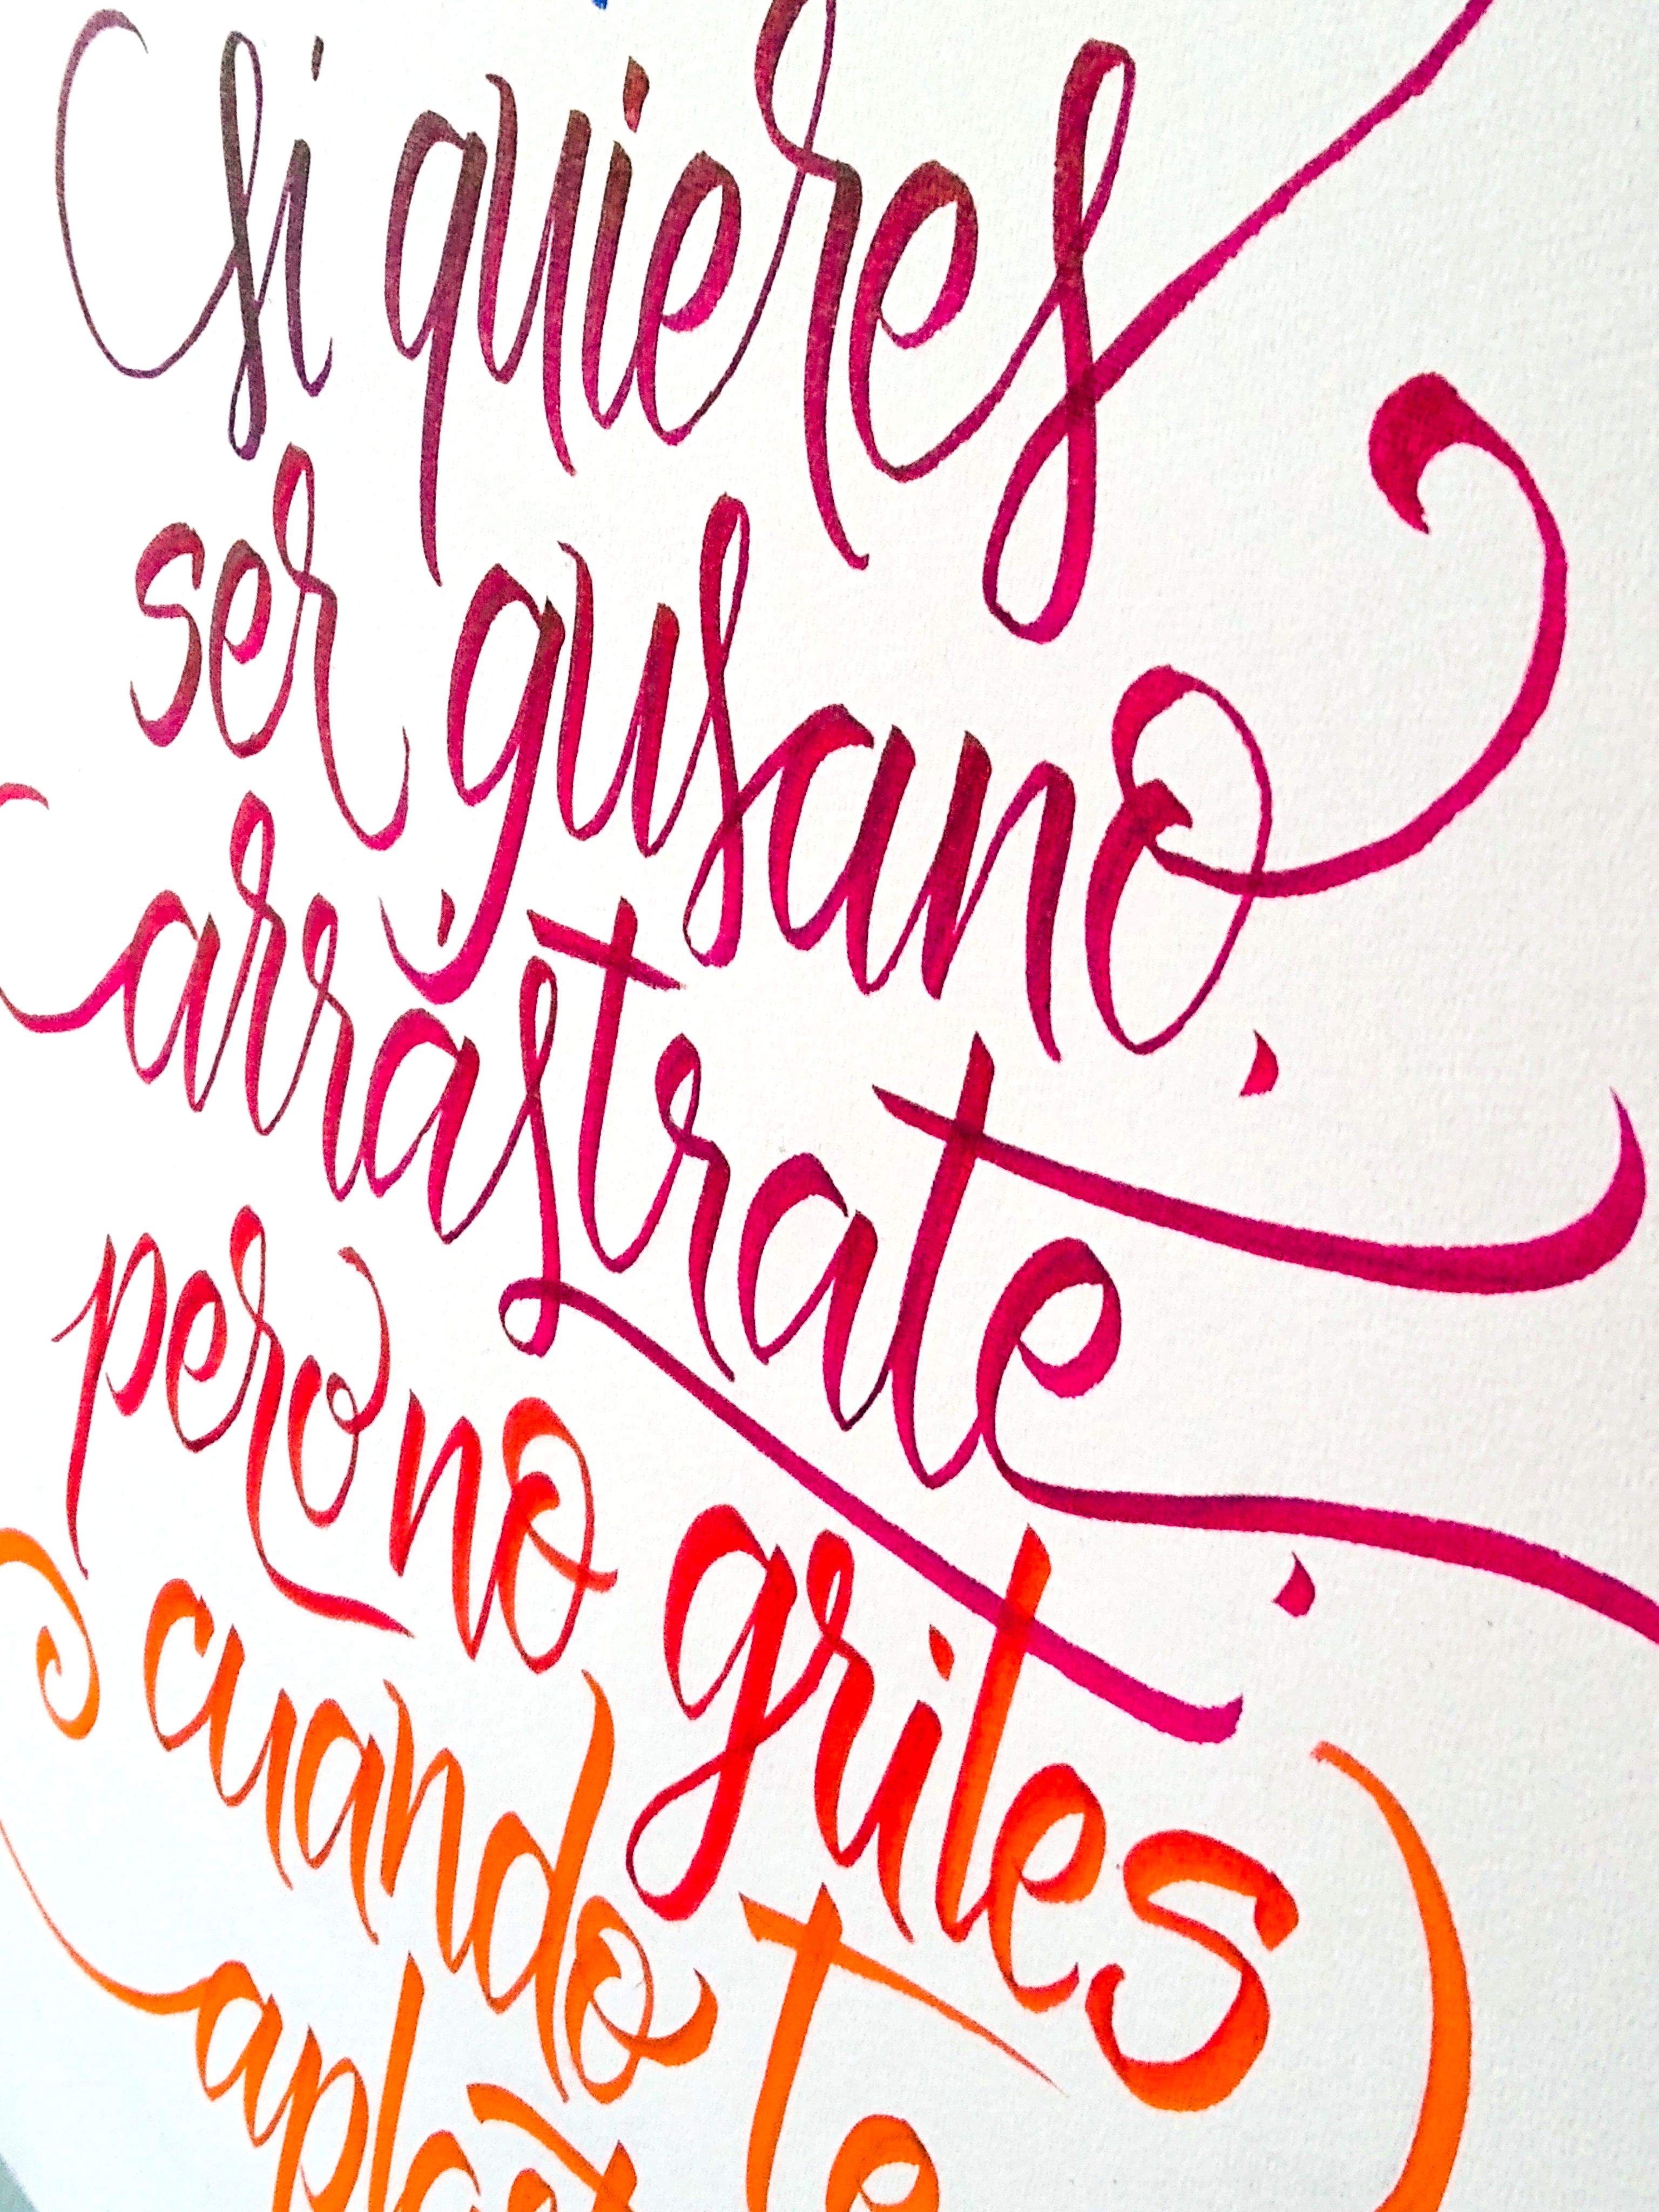 si quieres
ser gusano,
arrastrate,
pero no grites
cuando te